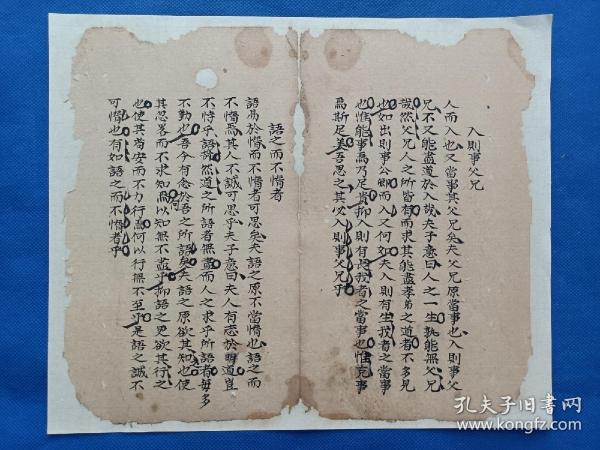 入則事父兄
人而入也又當事其父兄矣夫父兄原當事也入則事父
兄不又能盡道於入哉夫子意曰人之一生孰能無父兄
哉然父兄人之所皆有而求其能盡孝弟之道者不多見
也如出則事公卿而入又何如夫入則有生我者之當事
也惟能事焉乃足貴抑入則有長我者之當事也惟克事
焉斯足美吾思之其必入則事父兄乎
語之而不惰者
語而於惰而不惰者可思矣夫語之原不當惰也語之而
不惰焉其人不誠可思乎夫子意曰夫人有志於明道豈
不恃乎語哉然道之所語者無盡而人之求乎所語者每多
不勤也吾今有念於吾之所語矣夫語之原欲其知也使
其忽畧而不求知焉何以知無不盡乎抑語之更欲其行之
也使其苟安而不力行焉何以行無不至乎是語之誠不
可惰也有如語之而不惰者乎
孔夫子旧书网
www.kongfz.com